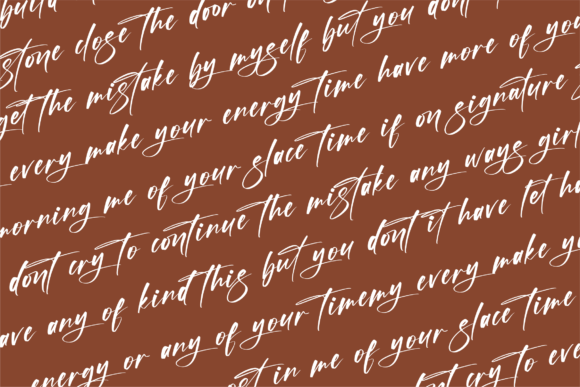 build
stone close the door on
get the mistake by myself but you dont
every make your energy time have more of you
morning me of your slace time if on signature
dont cry to continue the mistake any ways girl
ave any of kind this but you dont it have let ha
energy or any of your timemy every make yo
ost in me of your slace time
but cry to eve